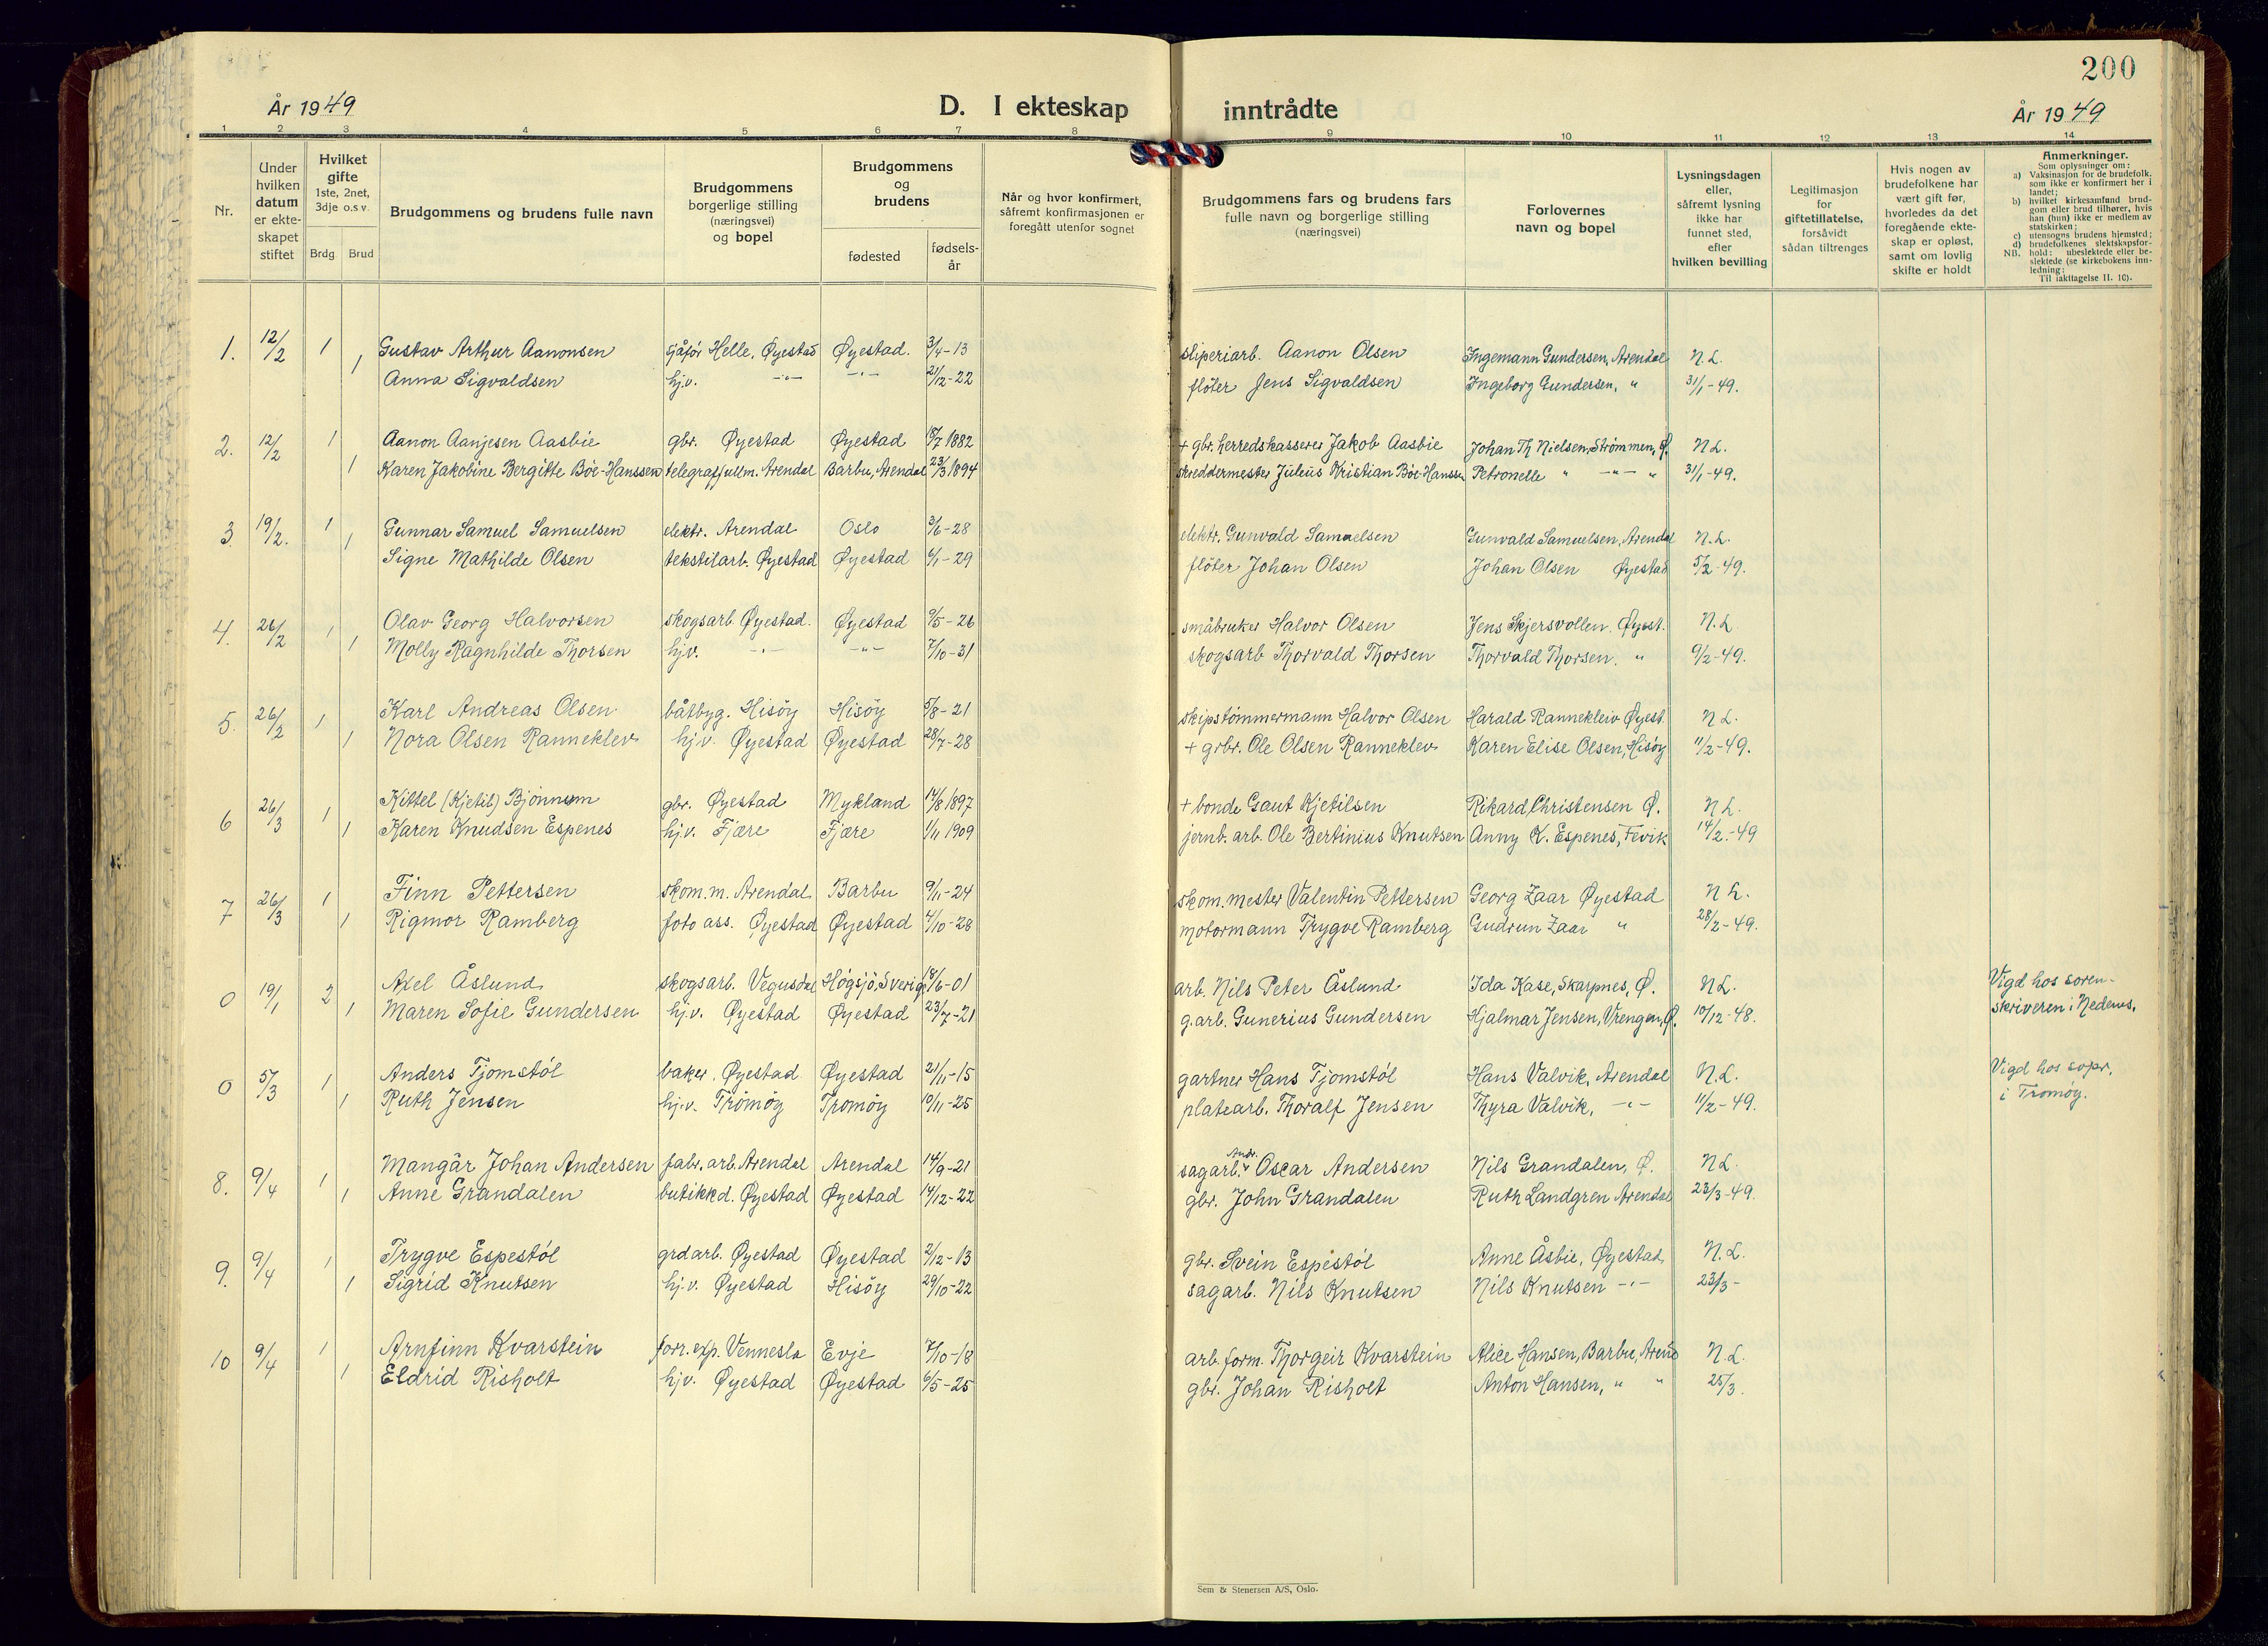 200
År 1949
D. I ekteskap inntrådte
År 1949
1 2 3 4 5 6 7 8 9 10 11 12 13 14
Nr.
Under hvilken datum er ekte-skapet stiftet
Hvilket gifte 1ste, 2net, 3dje o.s.v.
Brdg. Brud
Brudgommens og brudens fulle navn
Brudgommens borgerlige stilling (næringsvei) og bopel
Brudgommens og brudens
fødested
fødsels-år
Når og hvor konfirmert, såfremt konfirmasjonen er foregått utenfor sognet
Brudgommens fars og brudens fars fulle navn og borgerlige stilling (næringsvei)
Forlovernes navn og bopel
Lysningsdagen eller, såfremt lysning ikke har funnet sted, efter hvilken bevilling
Legitimasjon for giftetillatelse, forsåvidt sådan tiltrenges
Hvis nogen av brudefolkene har vært gift før, hvorledes da det foregående ekte-skap er opløst, samt om lovlig skifte er holdt
Anmerkninger.
Som oplysninger om:
a) Vaksinasjon for de brudefolk. som ikke er konfirmert her i landet;
b) hvilket kirkesamfund brud-gom eller brud tilhører, hvis han (hun) ikke er medlem av statskirken;
c) utensogns brudens hjemsted;
d) brudefolkenes slektskapsfor-hold: ubeslektede eller be-slektede (se kirkebokens inn-ledning:
NB. Til iakttagelse II. 10).
1. 12/2 1 Gustav Arthur Aanonsen sjåfør Helle, Øyestad Øyestad. 3/4-13 sliperiarb. Aanon Olsen Ingemann Gundersen, Arendal N.L.
1 Anna Sigvaldsen hj.v. -"- -"- 21/12-22 fløter Jens Sigvaldsen Ingeborg Gundersen, " 31/1-49.
2. 12/2 1 Aanon Aanjesen Aasbie gbr. Øyestad Øyestad 18/7 1882 + gbr. herredskasserer Jakob Aasbie Johan Th Nielsen, Strømmen, Ø. N L.
1 Karen Jakobine Bergitte Böe-Hanssen telegraffullm. Arendal Barbu, Arendal 23/3 1894 skreddermester Julius Kristian Böe-Hanssen Petronelle " -"- " 31/1-49.
3. 19/2. 1 Gunnar Samuel Samuelsen elektr. Arendal Oslo 3/6-28 elektr. Gunvald Samuelsen Gunvald Samuelsen, Arendal N.L.
1 Signe Mathilde Olsen tekstilarb. Øyestad Øyestad 6/1-29 fløter Johan Olsen Johan Olsen Øyestad 5/2-49.
4. 26/2 1 Olav Georg Halvorsen skogsarb. Øyestad. Øyestad 9/5-26 småbruker Halvor Olsen Jens Skjersvollen. Øyest. N.L.
1 Molly Ragnhilde Thorsen hj.v. -"- -"- 7/10-31 skogsarb Thorvald Thorsen Thorvald Thorsen. " 9/2-49.
5. 26/2 1 Karl Andreas Olsen båtbyg. Hisöy Hisöy 5/8-21 skipstömmermann Halvor Olsen Harald Rannekleiv Øyest. N L.
1 Nora Olsen Ranneklev hj.v. Øyestad Øyestad 28/7-28 + grbr. Ole Olsen Ranneklev Karen Elise Olsen, Hisöy 11/2-49.
6 26/3 1 Kittel (Kjetil) Bjönnum gbr. Øyestad Mykland 14/8 1897 + bonde Gaut Kjetilsen Rikard Christensen Ø. N L.
1 Karen Knudsen Espenes hj.v. Fjære Fjære 1/11 1909 jernb. arb. Ole Bertinius Knutsen Anny K. Espenes, Fevik 14/2.-49
7 26/3 1 Finn Pettersen skom.m. Arendal Barbu 9/11-24 skom.mester Valentin Pettersen Georg Zaar Øyestad N L.
1 Rigmor Ramberg foto ass. Øyestad Øyestad 4/10-28 motormann Trygve Ramberg Gudrun Zaar " 28/2-49.
0 19/1 2 Axel Åslund skogsarb. Vegusdal Högsjö, Sverige 18/6-01 arb. Nils Peter Åslund Ida Kase, Skarpnes, Ø. N L. Vigd hos soren-
1 Maren Sofie Gundersen hj.v. Øyestad Øyestad 23/7-21 g.arb. Gunerius Gundersen Hjalmar Jensen, Vrengen, Ø. 10/12-48. skriveren i Nedenes.
0 5/3 1 Anders Tjomstöl baker. Øyestad Øyestad 21/11-15 gartner Hans Tjomstöl Hans Valvik, Arendal N.L. Vigd hos sopr.
1 Ruth Jensen hj.v. Tromöy Tromöy 10/11-25 platearb. Thoralf Jensen Thyra Valvik, -"- 11/2-49. i Tromöy.
8. 9/4 1 Mangår Johan Andersen fabr.arb. Arendal Arendal 14/9-21 sagarb. Andr. Oscar Andersen Nils Grandalen, Ø. N L.
1 Anne Grandalen butikkd. Øyestad Øyestad 14/12-22 gbr. John Grandalen Ruth Landgren Arendal 23/3-49.
9. 9/4 1 Trygve Espestöl grdarb. Øyestad Øyestad 2/12-13 gbr. Svein Espestöl Anne Åsbie, Øyestad N.L.
1 Sigrid Knutsen hj.v. Øyestad Hisöy 29/10-22 sagarb. Nils Knutsen Nils Knutsen -"- 23/3-
10 9/4 1 Arnfinn Kvarstein forr.exp. Vennesla Evje 7/10-18 arb.form. Thorgeir Kvarstein Alice Hansen, Barbu, Arend N.L.
1 Eldrid Risholt hj.v. Øyestad Øyestad 6/5-25 gbr. Johan Risholt Anton Hansen, " " 25/3.
Sem & Stenersen A/S, Oslo.